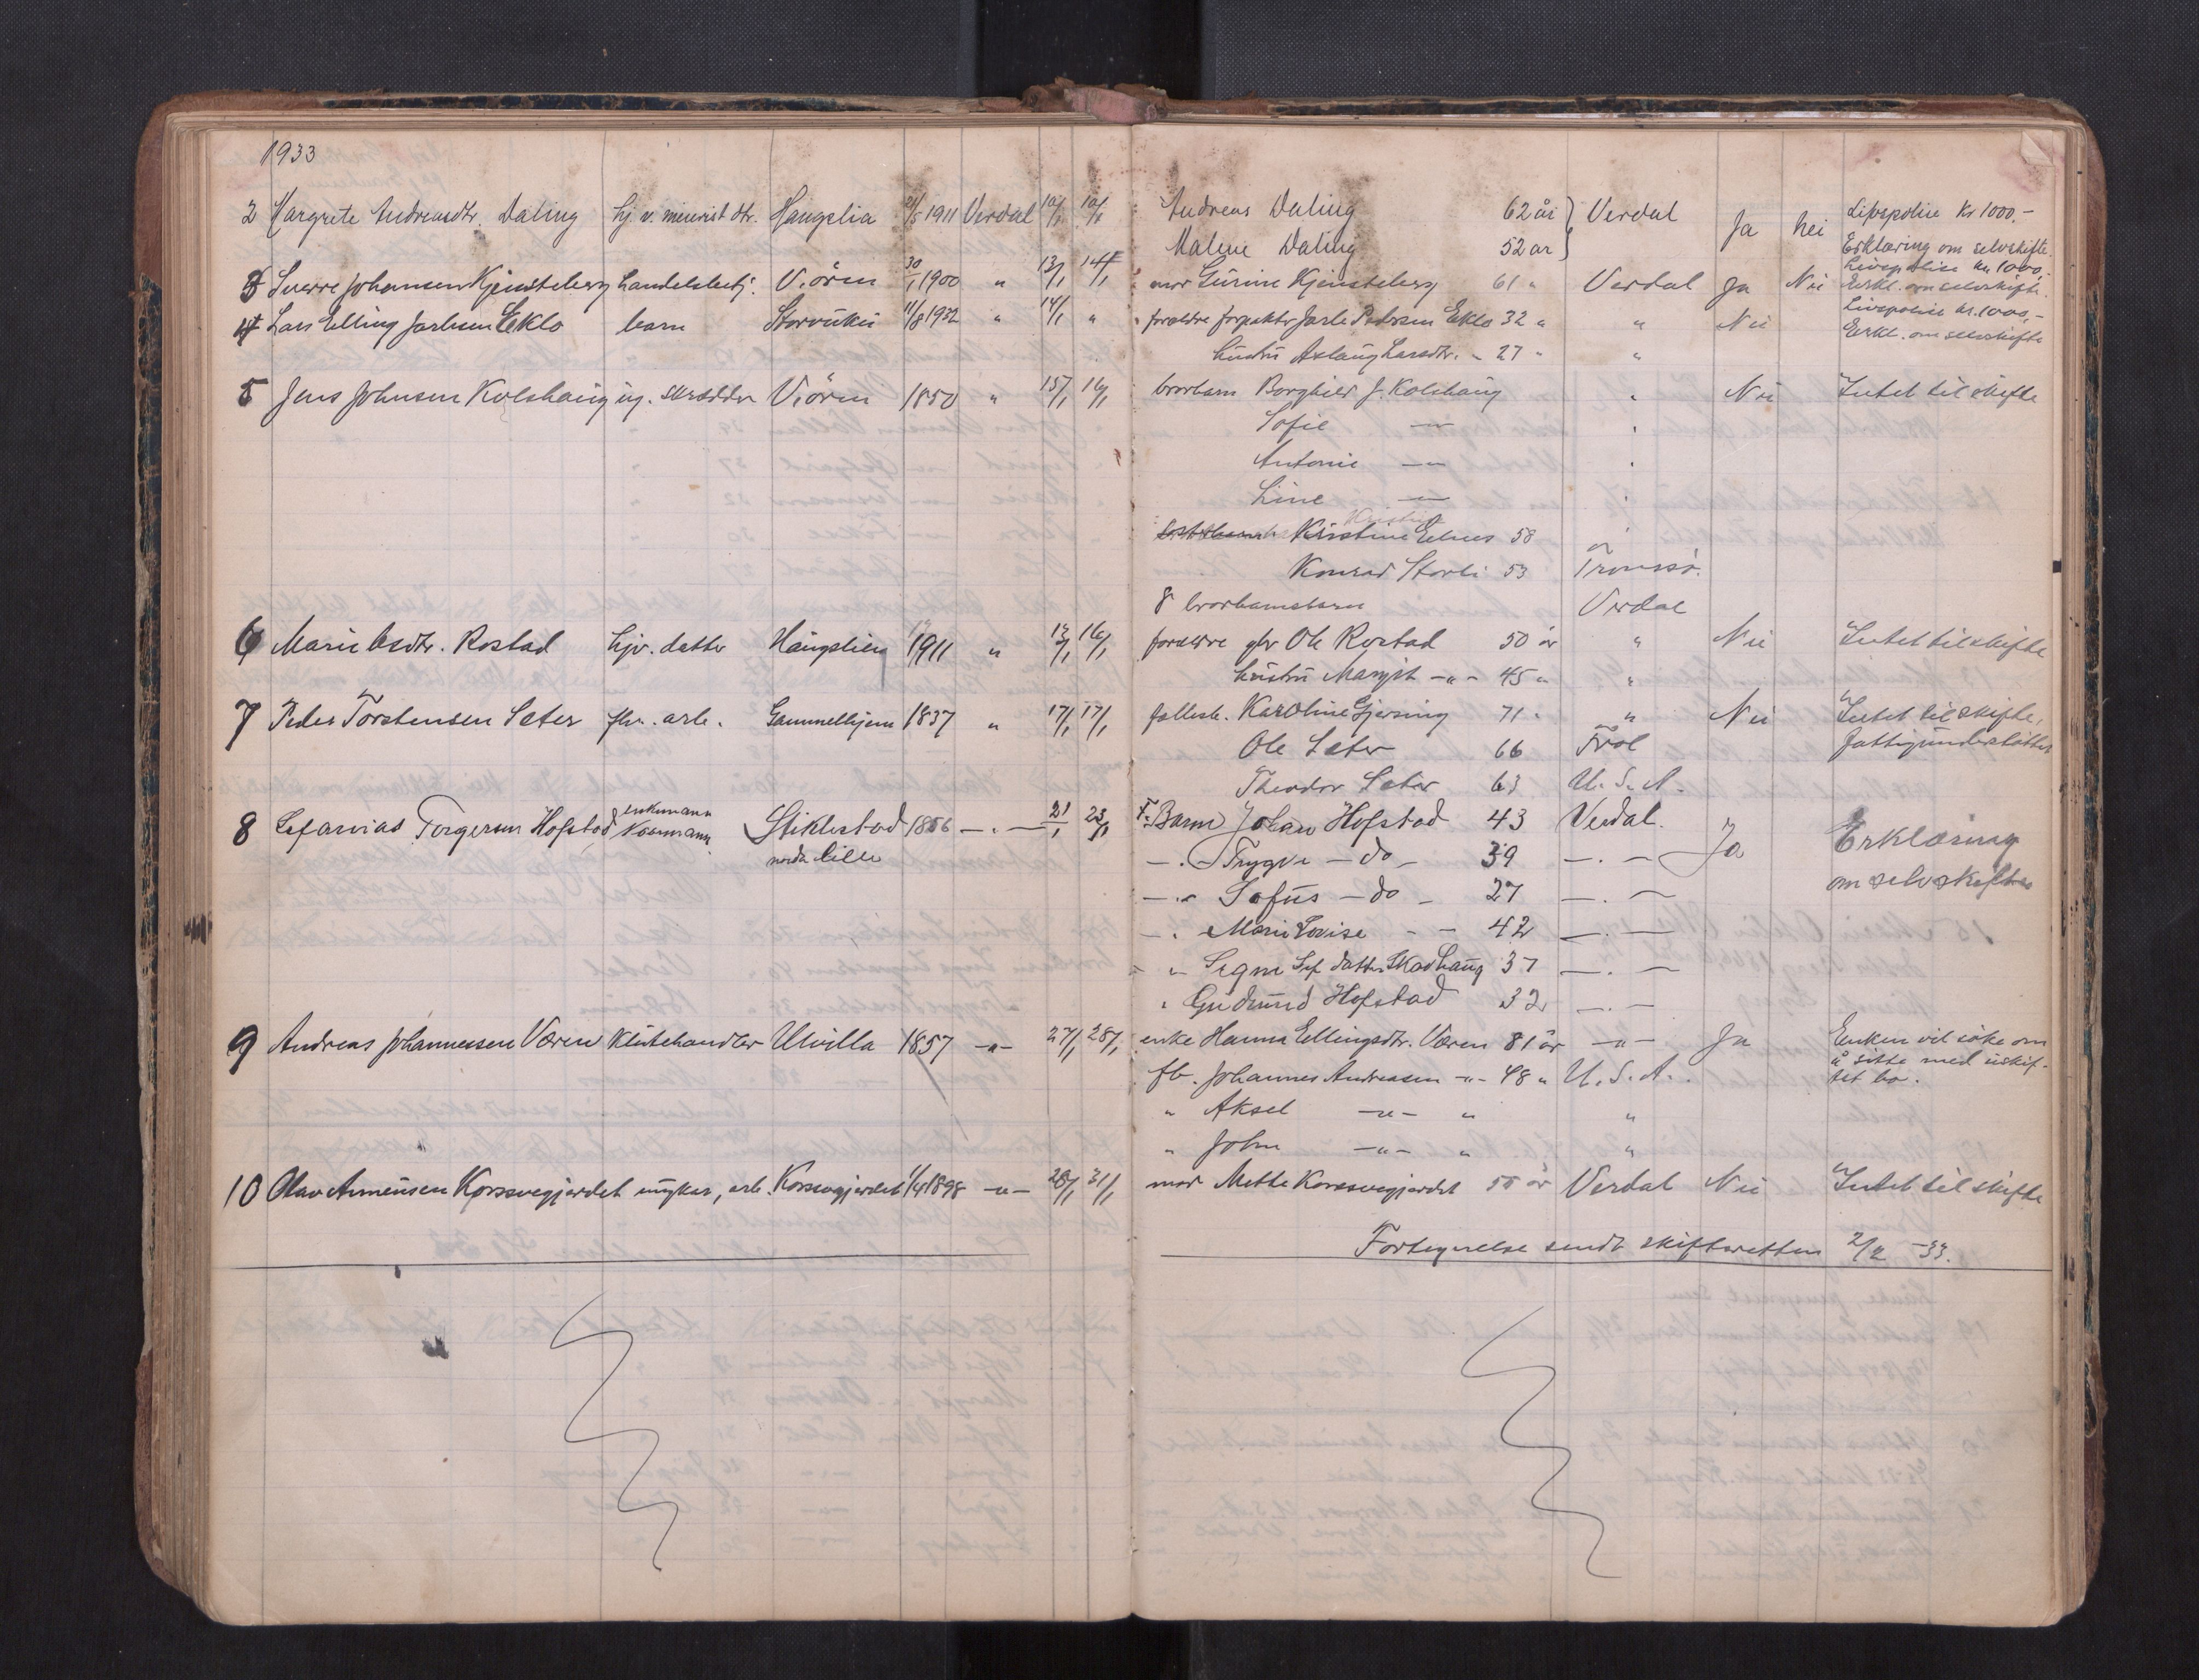 1933
2 Margrete Andreasdtr. Daling hj. v. minerist dtr. Haugslia 21/5 1911 Verdal 10/1 10/1 Andreas Daling 62 år Verdal Ja Nei Livspolise Kr 1000.-
Malene Daling 52 år Erklæring om selvskifte
3 Sverre Johansen Kjensteberg handelsbetj. V.ören 30/1 1900 " 13/1 14/1 mor Gurine Kjensteberg 61 " Verdal Ja Nei Livspolise kr. 1000,-
Erkl. om selvskifte.
4 Lars Elling Jarlsen Eklo barn Storvuku 11/8 1932 " 14/1 " foreldre forpakter Jarle Pedersen Eklo 32 " " Nei Livspolise kr. 1000,-
hustru Aslaug Larsdtr. " 27 " " Erkl. om selvskifte
5 Jens Johnsen Kolshaug ug. skredder V.ören 1850 " 15/1 16/1 brorbarn Borghild J. Kolshaug " Nei Intet til skifte
Sofie —"— "
Antonie —"— "
Line —"— "
Kristine Elnes 58 "
Konrad Storli 53 Tromsö.
8 brorbarnsbarn Verdal
6 Marie Olsdtr. Rostad hjv. datter Haugslien 1911 " 16/1 foreldre gbr Ole Rostad 50 år " Nei Intet til skifte
hustru Margit -"- 45 " "
7 Peder Torstensen Sæter fhv. arb. Gammelhjem 1837 " 17/1 17/1 fellesb. Karoline Gjersing 71 " " Nei Intet til skifte,
Ole Sæter 66 Frol fattigunderstöttet
Theodor Sæter 63 U.S.A.
8 Sefanias Torgersen Hofstad enkemann Kaarmann Stiklestad 1856 —"— 21/1 23/1 F. Barn Johan Hofstad 43 Verdal. Ja Erklæring
nordre lille —"— Trygve — do — 39 —"—
—"— Sofus — do — 27 —"— om selvskifte
—"— Marie Lovise - - 42 —"—
" Signe Sef. datter Skavhaug 37 —"—
" Gudmund Hofstad 32 —"—
9 Andreas Johannessen Væren Klutehandler Ulvilla 1857 -"- 27/1 28/1 enke Hanna Ellingsdtr. Væren 81 år -"- Ja Enken vil söke om
å sitte med uskif-
fb. Johannes Andreasen -"- 48 " U.S.A. tet bo.
" Aksel -"- " "
" John -"- " "
10 Olav Arneusen Korsvegjerdet ungkar, arb. Korsvegjerdet 1/4 1898 -"- 28/1 31/1 mor Mette Korsvegjerdet 55 år Verdal Nei Intet til skifte
Fortegnelse sendt skifteretten 2/2 -33.